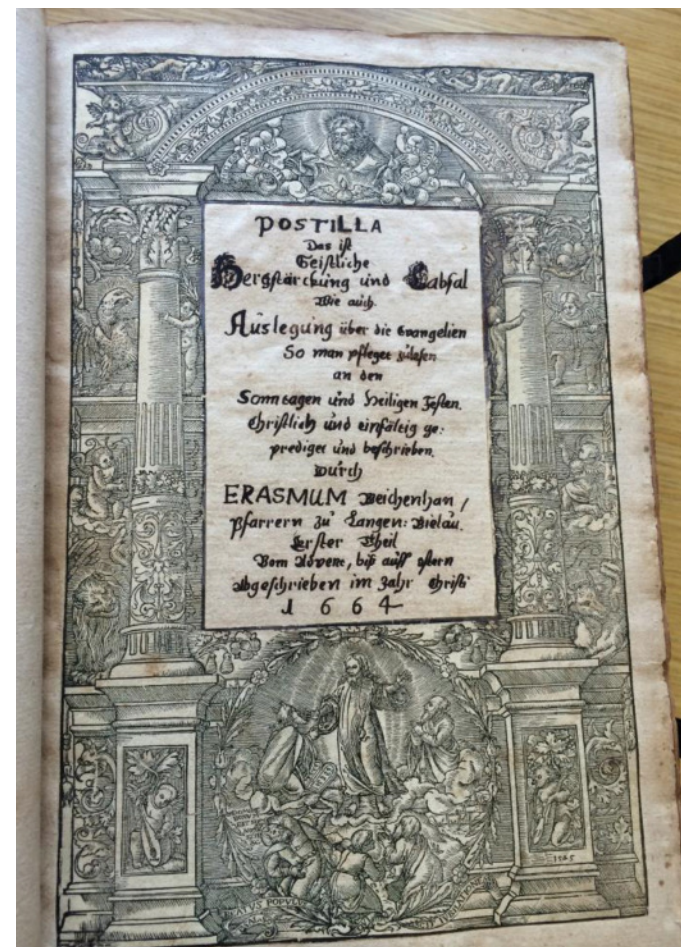 POSTILLA
Das ist
Geistliche
Hergstärckung und Labsal
Wie auch
Auslegung über die Evangelien
So man pfleget zulesen
an den
Sonntagen und Heiligen Festen.
Christlich und einfältig ge:
prediget und beschrieben.
Durch
ERASMUM Weichenhan /
Pfarrern zu Langen: Bielau.
Erster Theil
Vom Advent, biß auff ostern
Abgeschrieben im Jahr Christi
1664
1525